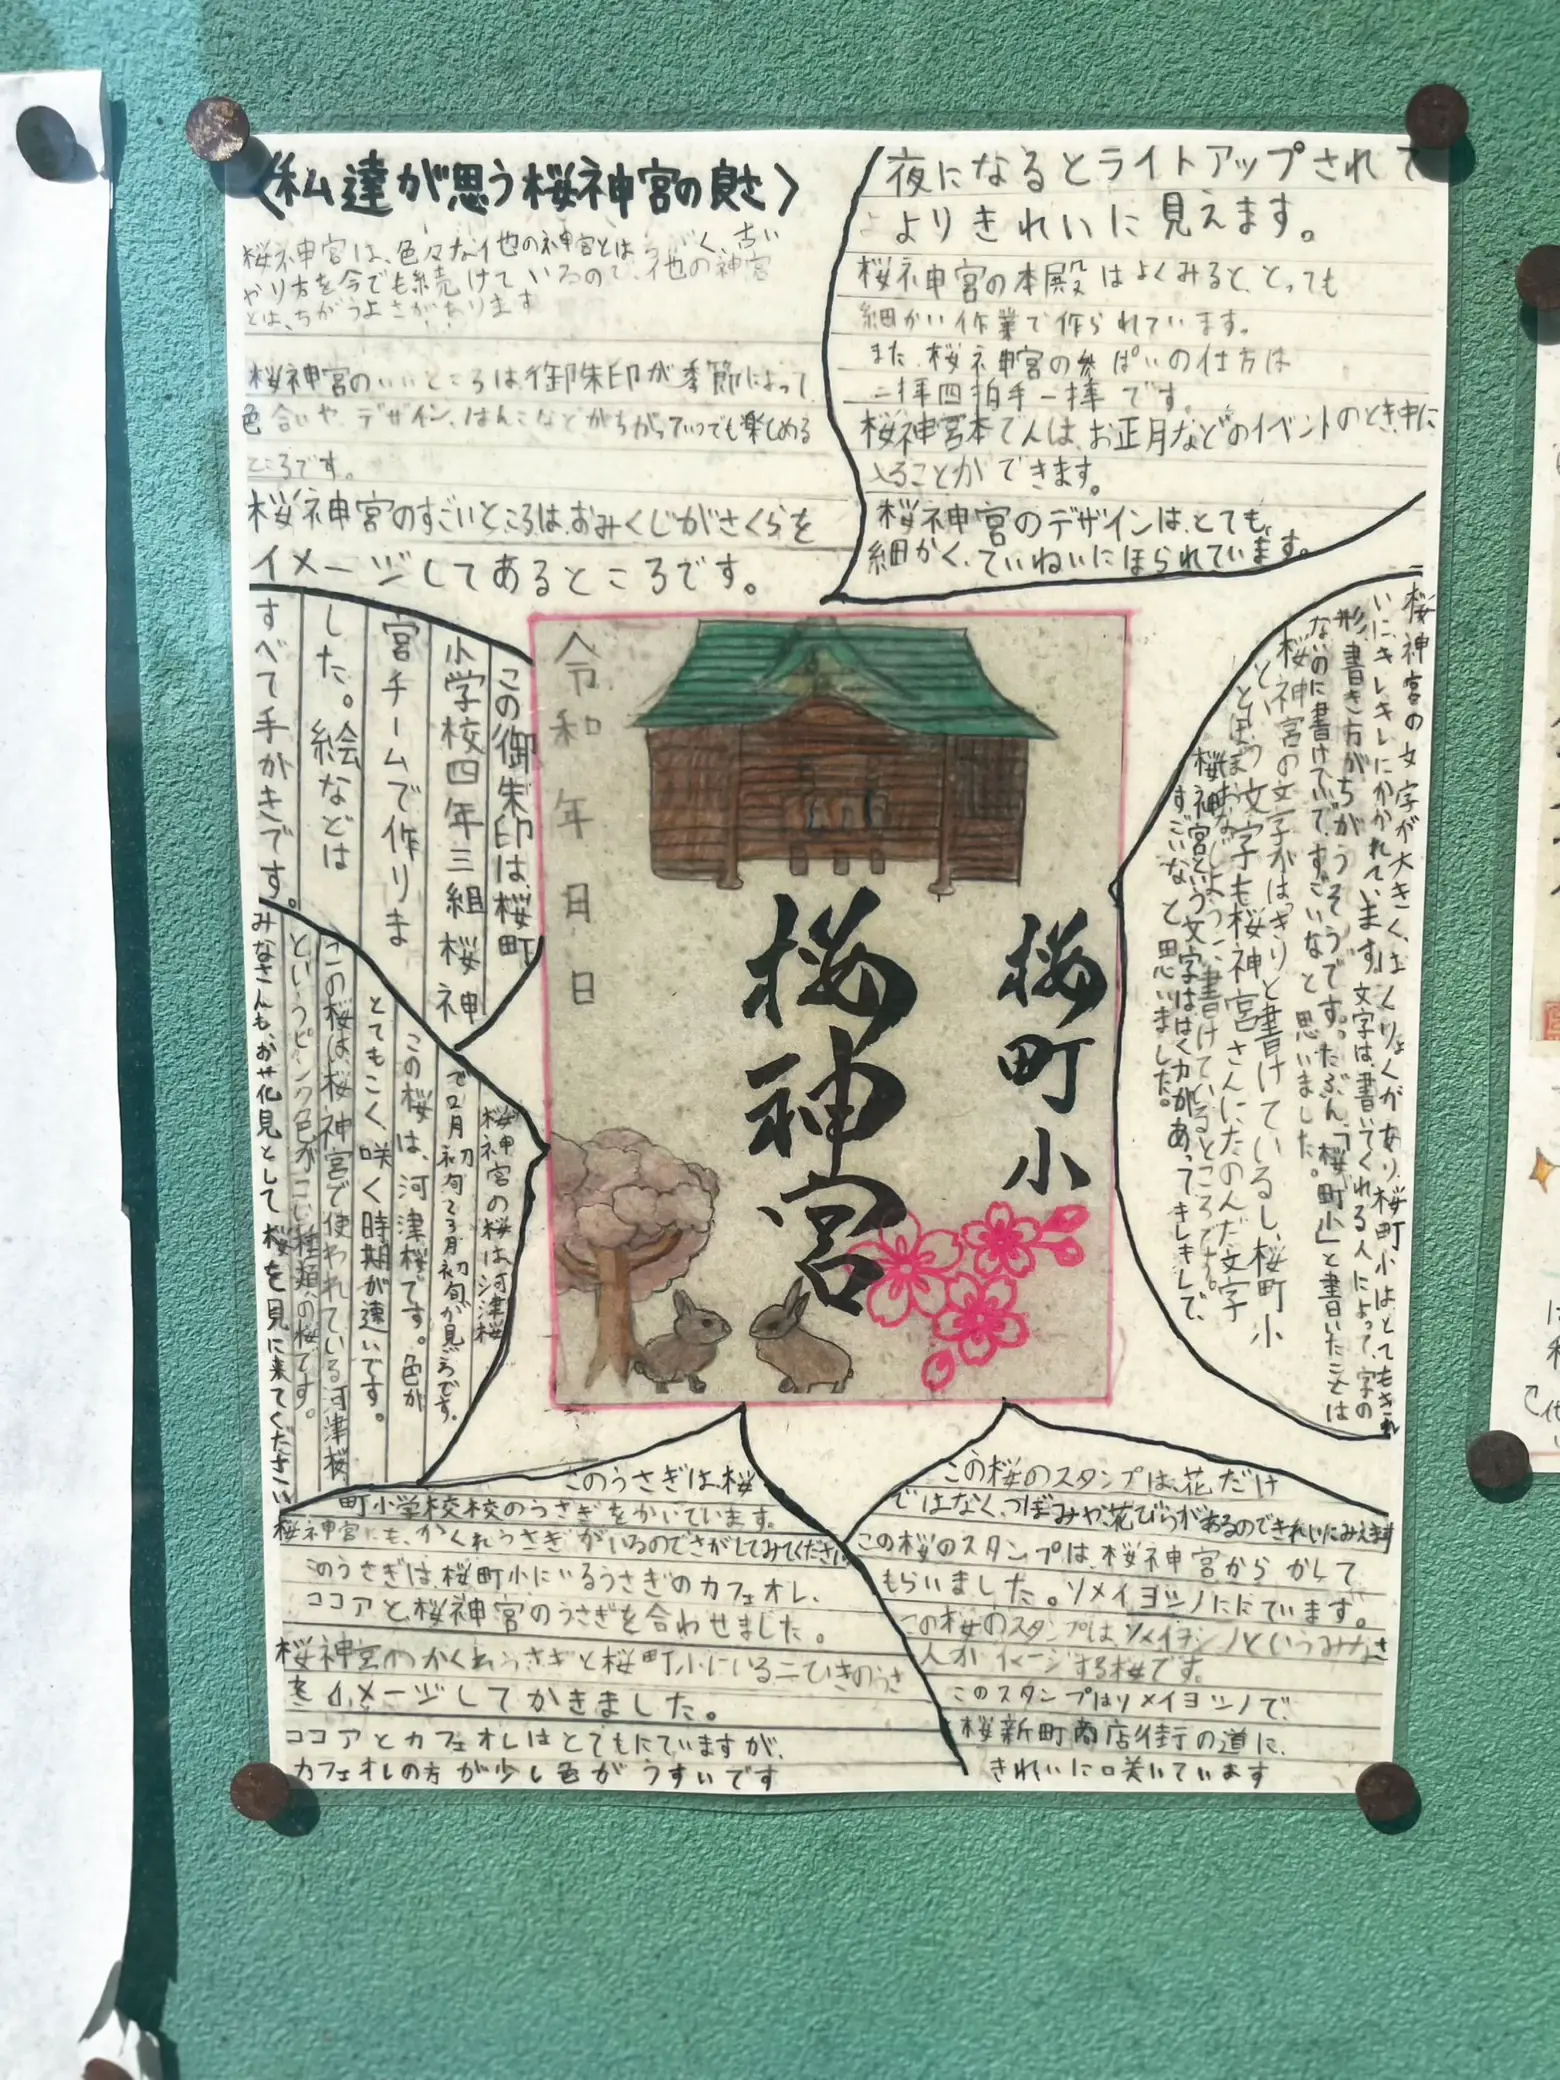 〈私達が思う桜神宮の良さ〉
桜神宮は、色々な他の神宮とはちがく、古い
やり方を今でも続けているので、他の神宮
とは、ちがうよさがあります
桜神宮のいいところは、御朱印が季節によって
色合いや、デザイン、はんこなどがちがっていつでも楽しめる
ところです。
桜神宮のすごいところは、おみくじがさくらを
イメージしてあるところです。
夜になるとライトアップされて
よりきれいに見えます。
桜神宮の本殿はよくみると、とっても
細かい作業で作られています。
また、桜神宮の参ぱいの仕方は
二拝四拍手一拝です。
桜神宮本でんは、お正月などのイベントのとき、中に
入ることができます。
桜神宮のデザインは、とても、
細かく、ていねいにほられています。
この御朱印は、桜町
小学校四年三組桜神
宮チームで作りま
した。絵などは
すべて手がきです。
令和 年 日 日
桜町小
桜神宮
桜神宮の文字が大きく、はくりょくがあり、桜町小はとてもきれ
いにキレキレにかかれています。文字は、書いてくれる人によって、字の
形、書き方がちがうそうです。たぶん、「桜町小」と書いたことは
ないのに書けていて、すごいなと思いました。
桜神宮の文字がはっきりと書けているし、桜町小
という文字も桜神宮さんにたのんだ文字
とほぼおなじように、書けているところです。
桜神宮という文字は、はく力があってきれきして、
すごいなと思いました。
桜神宮の桜は、河津桜
で2月初旬〜3月初旬が見ごろです。
この桜は、河津桜です。色が
とてもこく、咲く時期が速いです。
この桜は、桜神宮で使われている河津桜
というピンク色がこい種類の桜です。
みなさんも、お花見として桜を見に来てください
このうさぎは、桜
町小学校校のうさぎをかいています。
桜神宮にも、かくれうさぎがいるのでさがしてみてください
このうさぎは、桜町小にいるうさぎのカフェオレ、
ココアと、桜神宮のうさぎを合わせました。
桜神宮のかくれうさぎと桜町小にいる二ひきのうさ
ぎをイメージしてかきました。
ココアとカフェオレはとてもにていますが、
カフェオレの方が少し色がうすいです
この桜のスタンプは、花だけ
ではなく、つぼみや、花びらがあるのできれいにみえます
この桜のスタンプは、桜神宮からかして
もらいました。ソメイヨシノににています。
この桜のスタンプは、ソメイヨシノというみなさ
人がイメージする桜です。
このスタンプはソメイヨシノで、
桜新町商店街の道に、
きれいに咲いています